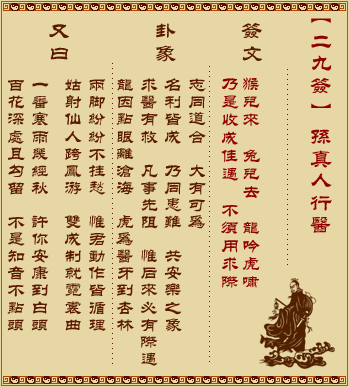 【二九簽】 孫真人行醫
簽文
猴兒來 兔兒去 龍吟虎嘯
乃是收成佳遇 不須用求際
卦象
志同道合 大有可為
名利皆成 乃同患難 共安樂之象
求醫有救 凡事先阻 惟后來必有際遇
龍因點眼離滄海 虎為醫牙到杏林
又曰
兩腳紛紛不挂愁 惟君動作皆循理
姑射仙人跨鳳游 雙成制就霓裳曲
一番寒雨幾經秋 許你安康到白頭
百花深處且勾留 不是知音不點頭